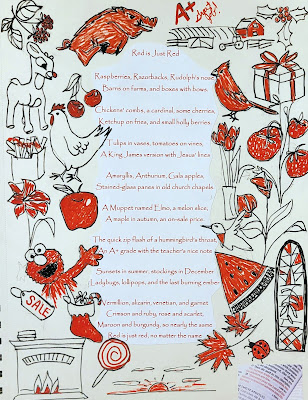 A+
Red is Just Red
Raspberries, Razorbacks, Rudolph's nose
Barns on farms, and boxes with bows.
Chickens' combs, a cardinal, some cherries,
Ketchup on fries, and small holly berries.
Tulips in vases, tomatoes on vines,
A King James version with Jesus' lines
Amaryllis, Anthurium, Gala apples,
Stained-glass panes in old church chapels.
A Muppet named Elmo, a melon slice,
A maple in autumn, an on-sale price.
The quick zip flash of a hummingbird's throat,
An A+ grade with the teacher's nice note.
Sunsets in summer, stockings in December
Ladybugs, lollipops, and the last burning ember
Vermillion, alizarin, venetian, and garnet
Crimson and ruby, rose and scarlet,
Maroon and burgundy, so nearly the same
Red is just red, no matter the name.
SALE